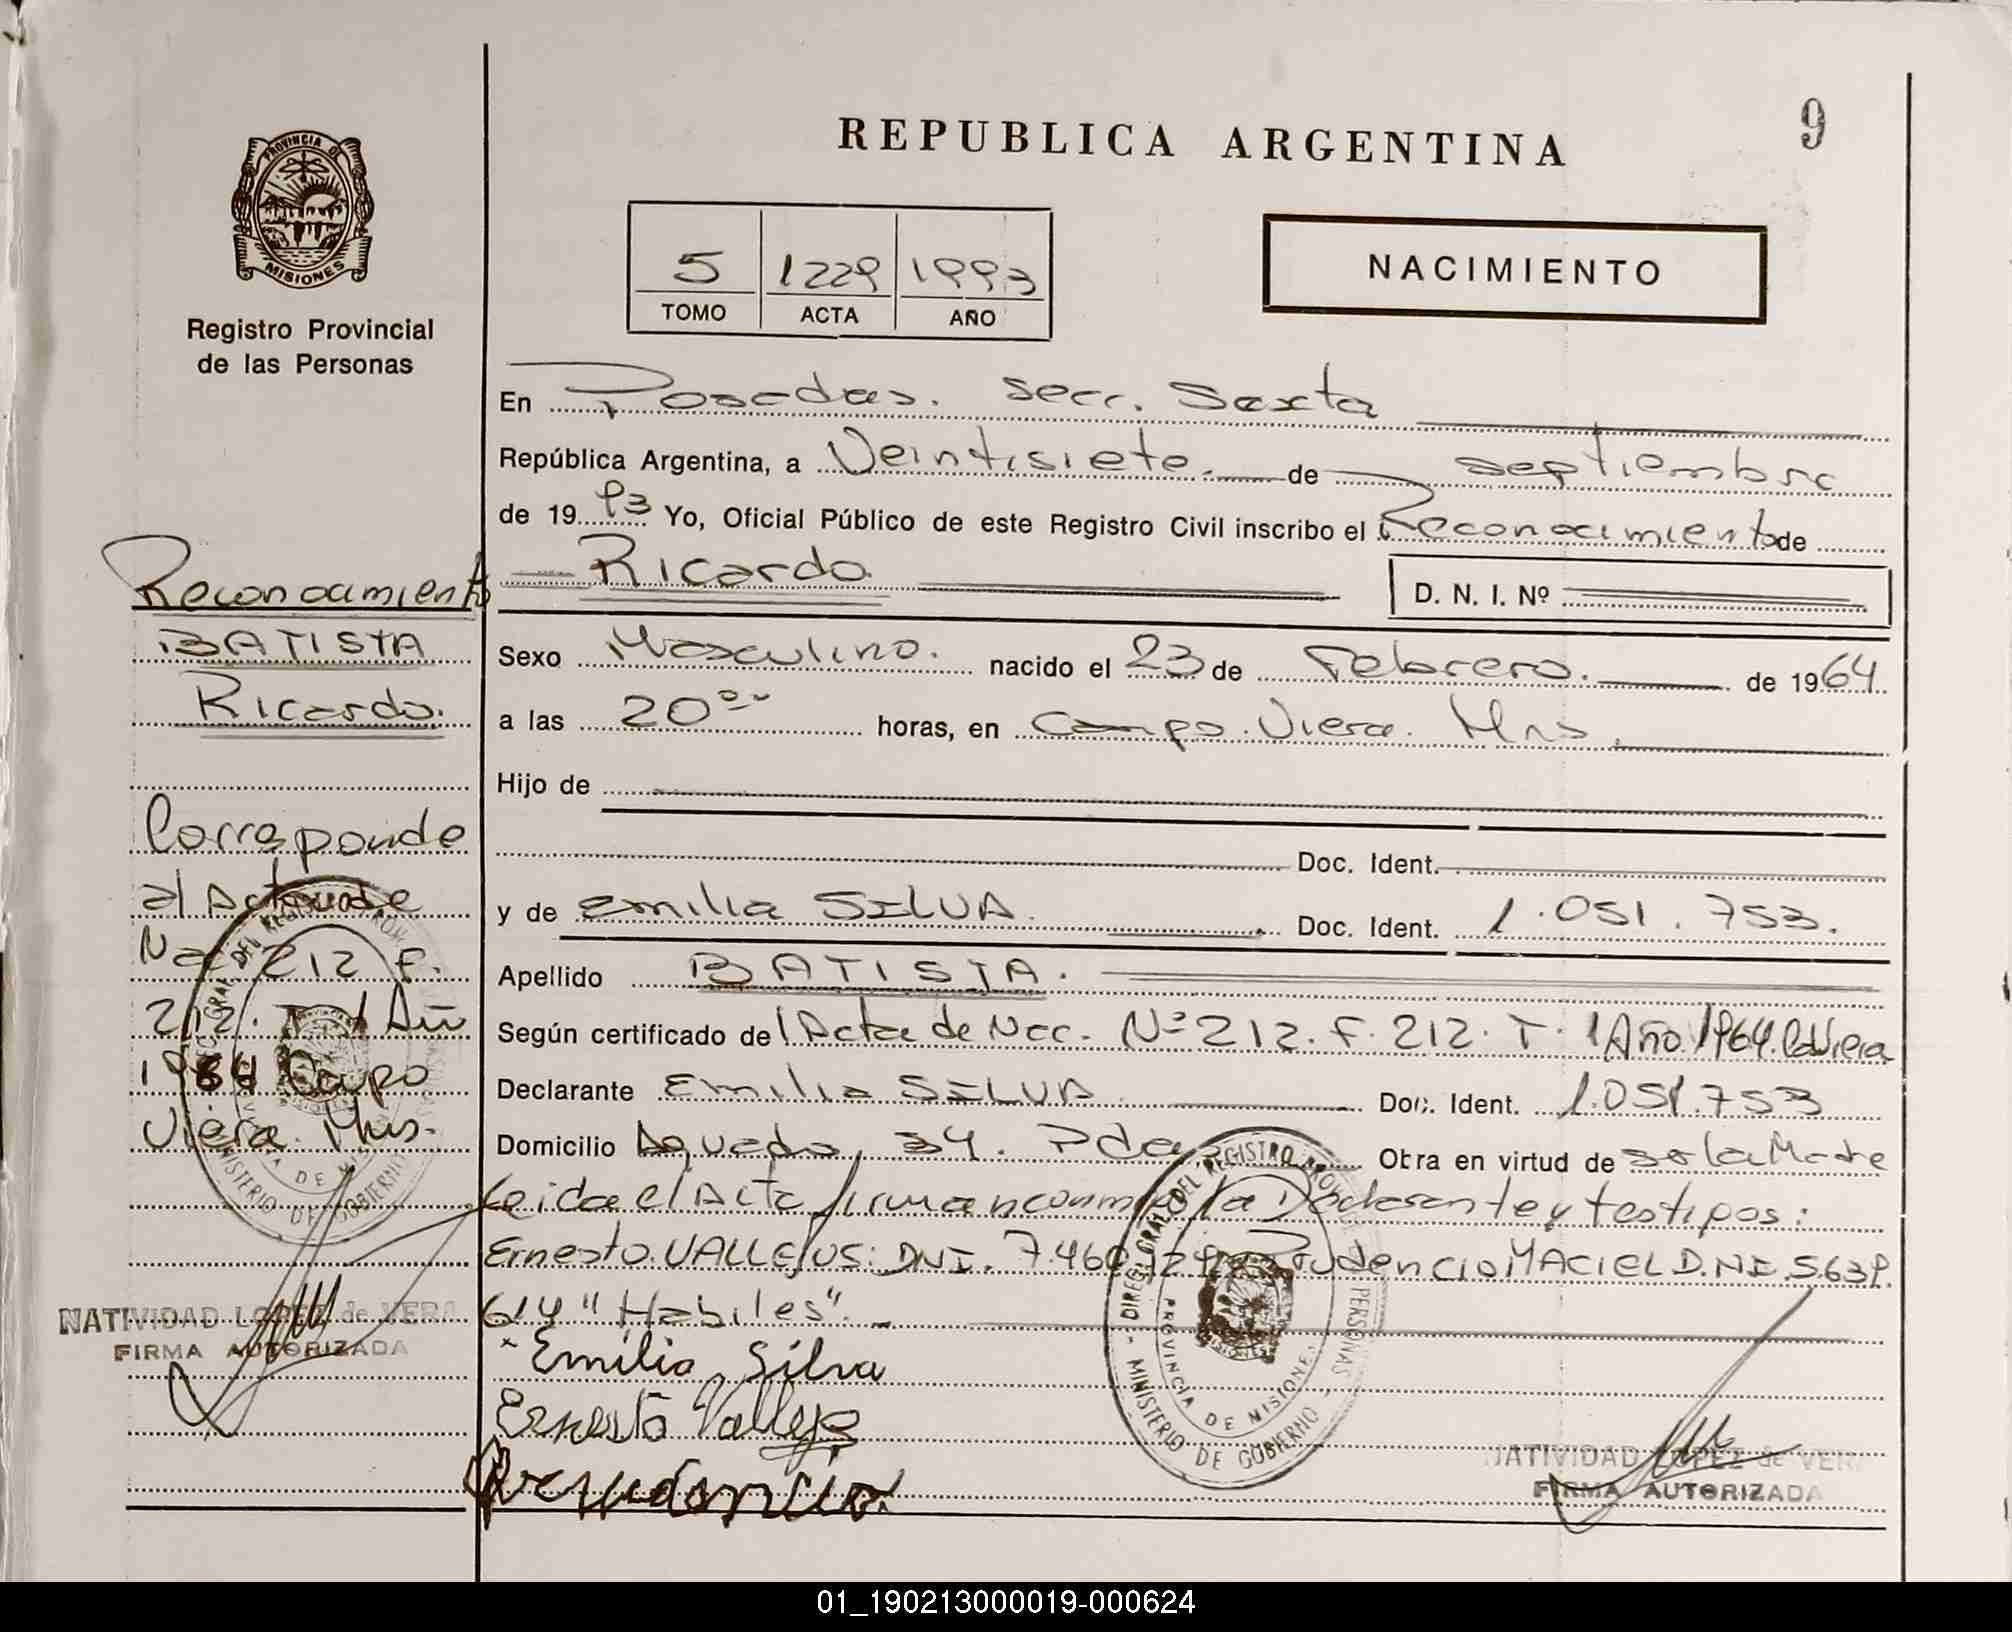 REPUBLICA ARGENTINA
9
PROVINCIA DE
MISIONES
Registro Provincial
de las Personas
5 1229 1993
TOMO ACTA AÑO
NACIMIENTO
En Posadas. Secc. Sexta
República Argentina, a Veintisiete. de septiembre
de 19 93 Yo, Oficial Público de este Registro Civil inscribo el Reconocimiento de
Ricardo D. N. I. Nº
Sexo Masculino. nacido el 23 de Febrero. de 1964
a las 20⁰⁰ horas, en Campo Viera. Mns.
Hijo de
Doc. Ident.
y de Emilia SILVA. Doc. Ident. 1.051.753.
Apellido BATISTA.
Según certificado de l Acta de Nac. Nº 212. F. 212. T. 1 Año 1964. C. Viera
Declarante Emilia SILVA Doc. Ident. 1.051.753
Domicilio 34. Pdas Otra en virtud de ser la Madre
Leida el Acta firman conmigo la Declarante y testigos:
Ernesto VALLEJOS: DNI. 7.460. Prudencio MACIEL D.NI 5.639.
614 "Habiles".
Emilia Silva
Ernesto Vallejo
Prudencio
Reconocimiento
BATISTA
Ricardo.
Corresponde
al Acta de
Nac 212 F.
212. T 1 Año
1964 Campo
Viera. Mns.
NATIVIDAD LOPEZ de VERA
FIRMA AUTORIZADA
DIREC. GRAL. DEL REGISTRO PROV. PERSONAS
MINISTERIO DE GOBIERNO
PROVINCIA DE MISIONES
NATIVIDAD LOPEZ de VERA
FIRMA AUTORIZADA
01_190213000019-000624